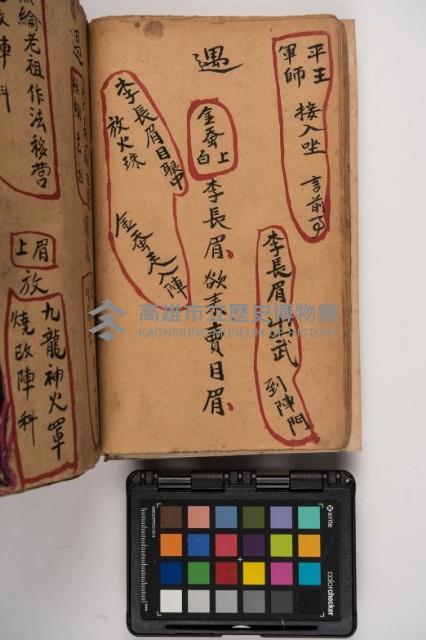 平王
軍師 接入坐 言前
李長眉出武 到陣門
遇
金蚕
上白
李長眉、欲 賣目眉、
李長眉目眼中
放火珠
金蚕走入陣
老祖作法移营
陣科
遇
上眉
放
九龍神火罩
燒改陣科
高雄市立歷史博物館
KAOHSIUNG MUSEUM OF HISTORY
x-rite
colorchecker